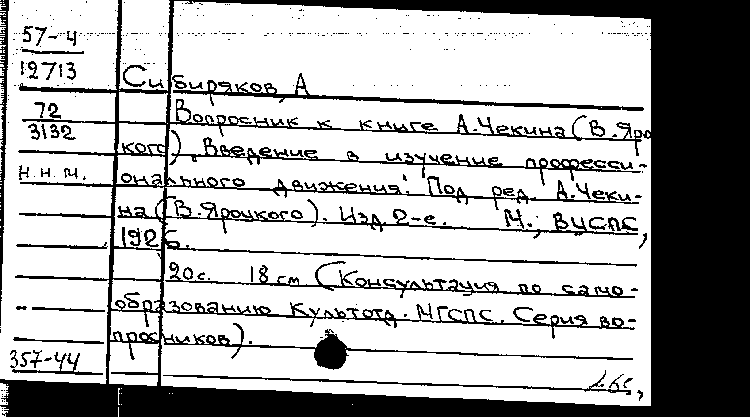 57-4
12713
Сибиряков, А
72
3132
Вопросник к книге А.Чекина (В.Яро
кого) „Введение в изучение професси-
н.н.м.
онального движения". Под ред. А.Чеки-
на (В.Яроцкого). Изд 2-е. М., ВЦСПС,
1926.
20с. 18 см (Консультация по само-
образованию Культотд. МГСПС. Серия во-
просников).
357-44